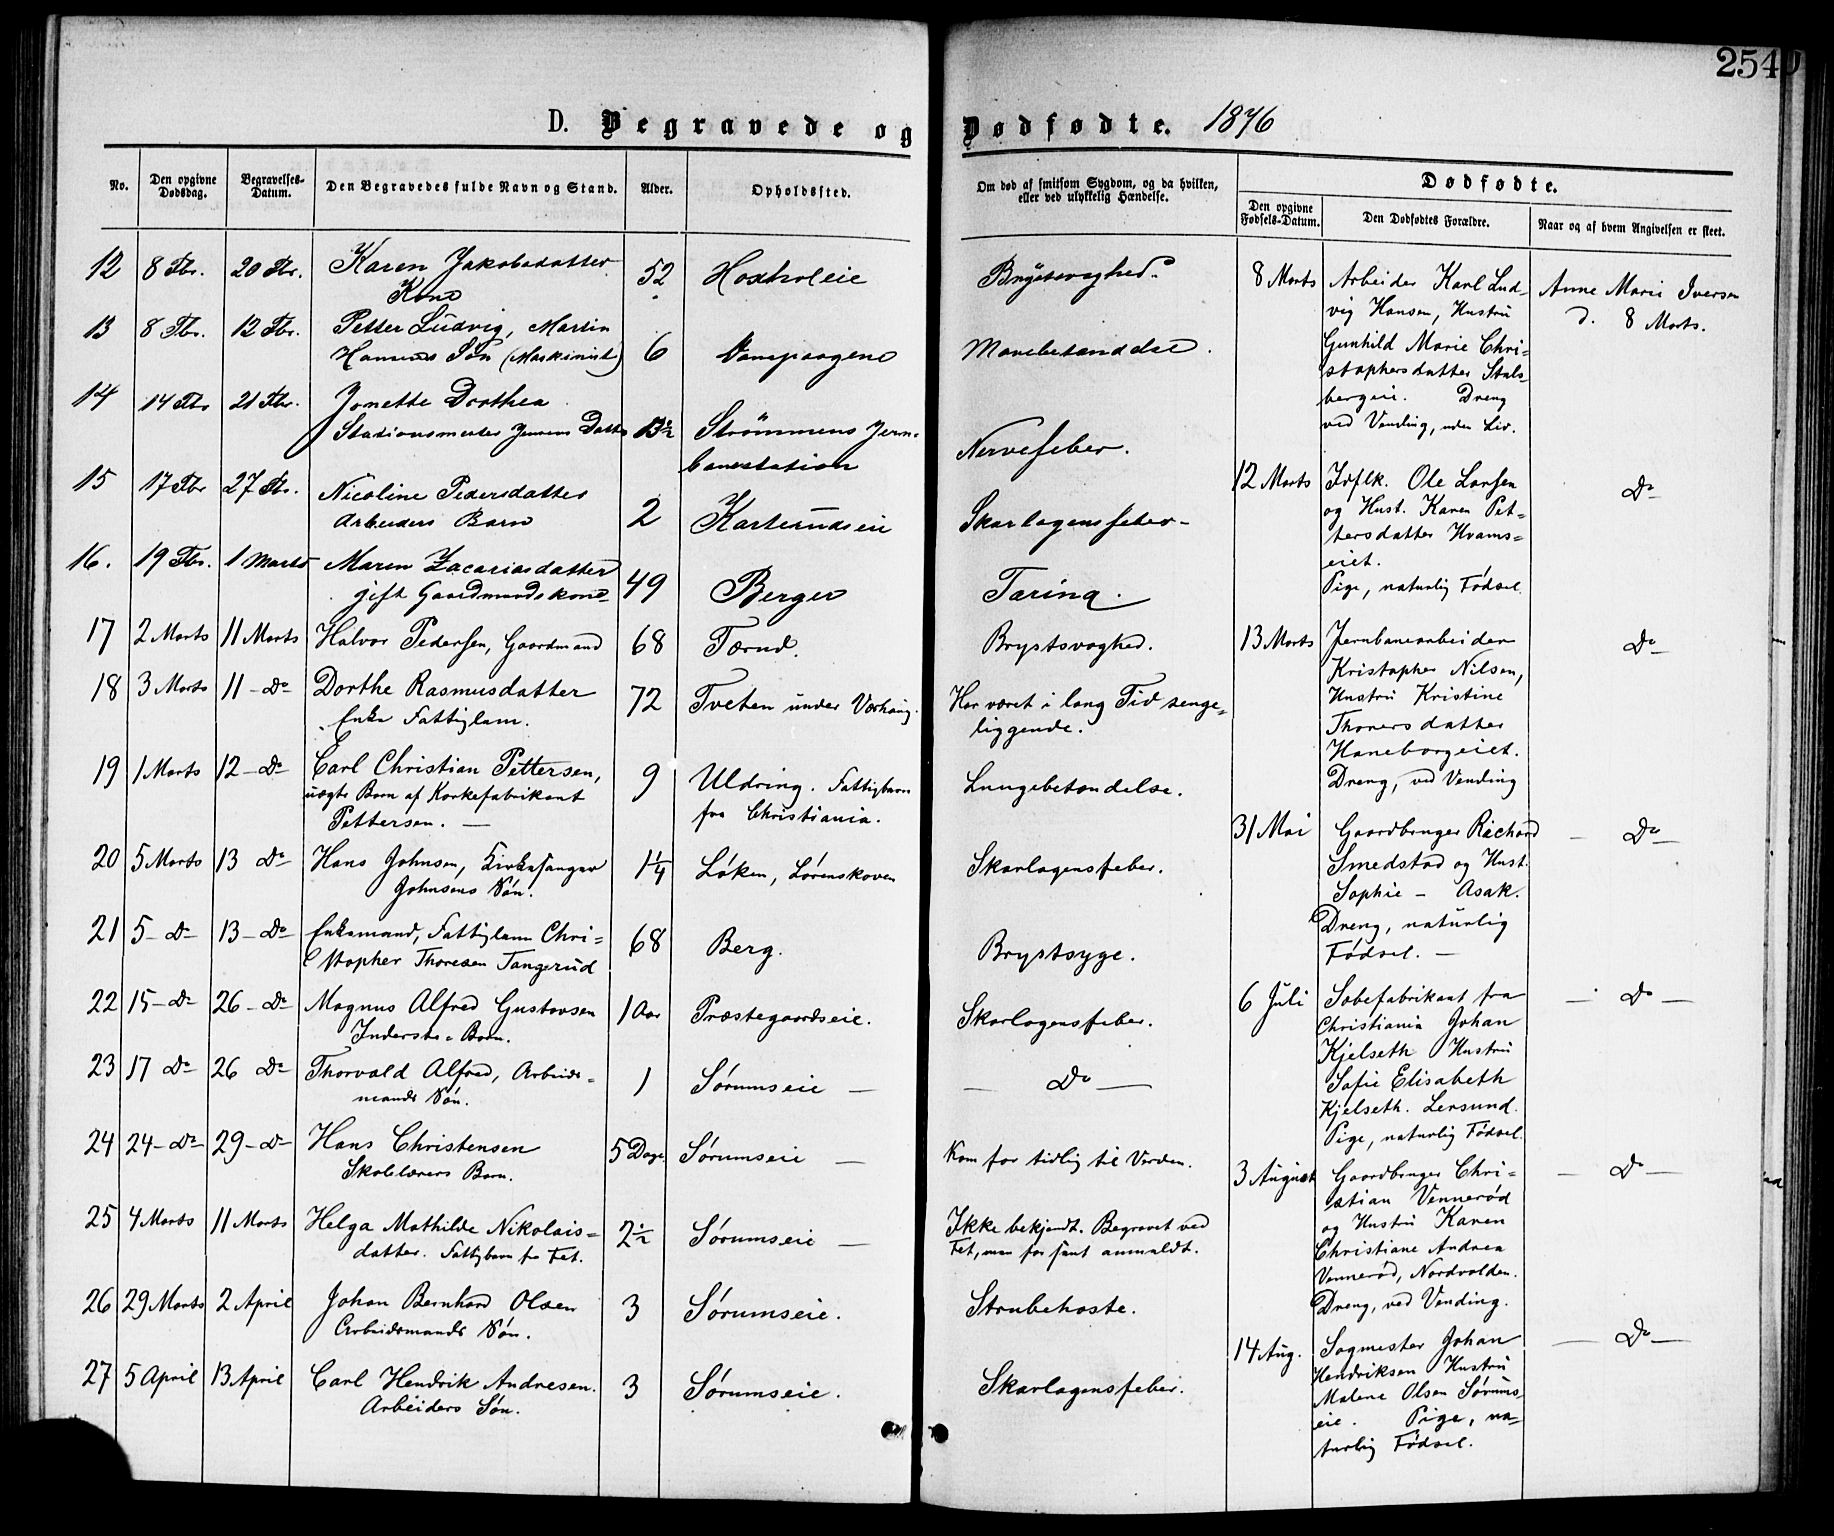 254
D. Begravede og Dødfødte. 1876
No.
Den opgivne Dødsdag.
Begravelses-Datum.
Den Begravedes fulde Navn og Stand.
Alder.
Opholdssted.
Om død af smitsom Sygdom, og da hvilken, eller ved ulykkelig Hændelse.
Dødfødte.
Den opgivne Fødsels-Datum.
Den Dødfødtes Forældre.
Naar og af hvem Angivelsen er skeet.
12 8 Fbr. 20 Fbr. Karen Jakobsdatter 52 Brystsvaghed.
Kone
13 8 Fbr. 12 Fbr. Petter Ludvig, Martin
Hansens Søn (Maskinist) 6 Mavebetændelse.
14 14 Fbr 21 Fbr. Jonette Dorthea
Stationsmester Jensens Datter 13½ Strömmens Jern-
banestation Nervefeber.
15 17 Fbr 27 Fbr. Nicoline Pedersdatter
Arbeiders Barn 2 Karterudseie Skarlagensfeber-
16. 19 Fbr. 1 Marts Maren Zacariasdatter
gift Gaardmandskone 49 Berger Taring.
17 2 Marts 11 Marts Halvor Pedersen, Gaardmand 68 Tærud. Brystsvaghed.
18 3 Marts 11 - Do Dorthe Rasmusdatter 72 Tveten under Værhaug. Har været i lang Tid senge-
Enke Fattiglem. liggende.
19 1 Marts 12 - Do Carl Christian Pettersen, 9 Uldring. Fattigbarn Lungebetændelse.
uægte Barn af Korkefabrikant fra Christiania.
Pettersen. —
20 5 Marts 13 Do Hans Johnsen, Kirkesanger 1¼ Løken, Lørenskoven Skarlagensfeber.
Johnsens Søn.
21 5 - Do 13 - Do Enkemand, Fattiglem Chri- 68 Berg. Brystsyge.
stopher Thoresen Tangerud
22 15 - Do 26 - Do Magnus Alfred Gustavsen 1 Aar Præstegaardseie. Skarlagensfeber.
Inderste - Barn.
23 17 Do 26 Do Thorvald Alfred, Arbeids- 1 Sørumseie — — Do —
mands Søn.
24 24 - Do 29 - Do Hans Christensen 5 Dage Sørumseie — Kom for tidlig til Verden.
Skolelærers Barn.
25 4 Marts 11 Marts Helga Mathilde Nikolais- 2½ Sørumseie — Ikke bekjendt. Begravet ved
datter. Fattigbarn fra Fet. Fet, men for sent anmeldt.
26 29 Marts 2 April Johan Bernhard Olsen 3 Sørumseie. Strubehoste.
Arbeidsmands Søn.
27 5 April 13 April Carl Hendrik Andresen. 3 Sørumseie. Skarlagensfeber.
Arbeiders Søn.
8 Marts Arbeider Karl Lud- Anne Marie Iversen
vig Hansen, Hustru d. 8 Marts.
Gunhild Marie Chri-
stophersdatter Stals-
bergeie. Dreng
ved Vending, uden Liv.
12 Marts Ole Larsen Do
og Hust. Karen Pet-
tersdatter Hvams-
eiet.
Pige, naturlig Fødsel.
13 Marts Jernbanearbeider Do
Kristopher Nilsen,
Hustru Kristine
Thorersdatter
Haneborgeiet.
Dreng, ved Vending
31 Mai Gaardbruger Richard — Do —
Smedstad og Hust.
Sophie - Asak.
Dreng, naturlig
Fødsel. —
6 Juli Sæbefabrikant fra — Do —
Christiania Johan
Kjelseth Hustru
Sofie Elisabeth
Kjelseth. Lersund.
Pige, naturlig Fødsel.
3 August Gaardbruger Chri- — Do —
stian Vennerød
og Hustru Karen
Christiane Andrea
Vennerød, Nordvolden.
Dreng, ved Vending.
14 Aug. Sagmester Johan — Do —
Hendriksen Hustru
Malene Olsen Sørums-
eie. Pige, na-
turlig Fødsel.